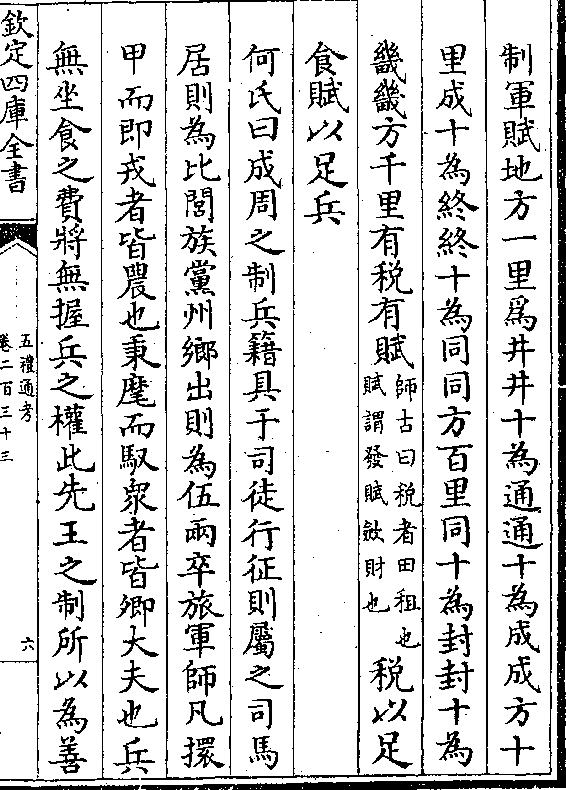 制軍賦地方一里爲井井十為通通十為成成方十
里成十為終終十為同同方百里同十為封封十為
畿畿方千里有税有賦師古曰税者田租也賦謂發賦斂財也税以足
食賦以足兵
何氏曰成周之制兵籍具于司徒行征則屬之司馬
居則為比閭族黨州鄉出則為伍兩卒旅軍師凡擐
甲而即戎者皆農也秉麾而馭衆者皆卿大夫也兵
無坐食之費將無握兵之權此先王之制所以為善
欽定四庫全書
五禮通考
卷二百三十三
六